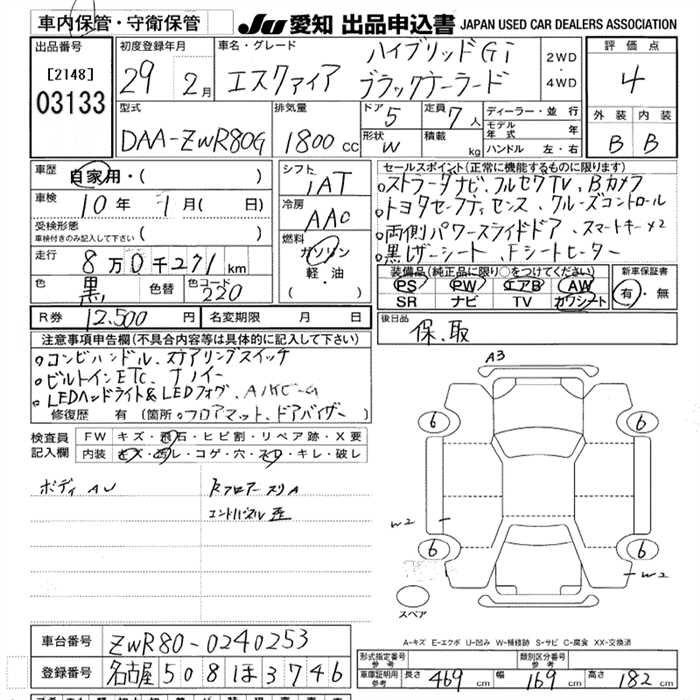 車内保管・守衛保管 JU 愛知 出品申込書 JAPAN USED CAR DEALERS ASSOCIATION
出品番号 [2148] 03133
初度登録年月 29 2月
車名・グレード エスクァイア ハイブリッドGi ブラックテーラード
2WD・4WD
評価点 4
型式 DAA-ZWR80G
排気量 1800 cc
ドア 5 定員 7人
形状 W 積載 kg
ディーラー・並行
モデル年式 年
ハンドル 左・右
外装 内装
B B
車歴 自家用・( )
車検 10年 1月( 日)
受検形態
車検付きのみ記入して下さい ( )
走行 8万0千271km
色 黒 色替 色コード 220
シフト IAT
冷房 AAC
燃料 ガソリン 軽・油 ( )
セールスポイント(正常に機能するものに限ります)
ストラーダナビ、フルセグTV、Bカメラ
トヨタセーフティセンス、クルーズコントロール
両側パワースライドドア、スマートキー×2
黒レザーシート、Fシートヒーター
装備品(純正品に限り○をつけてください) 新車保証書
PS PW エアB AW 有・無
SR ナビ TV カワシート
R券 12,500円 名変期限 月 日
後日品 保、取
注意事項申告欄(不具合内容等は具体的に記入して下さい)
コンビハンドル、ステアリングスイッチ
ビルトインETC、ナノイー
LEDヘッドライト&LEDフォグ、
修復歴 有 (箇所 フロアマット、ドアバイザー )
検査員記入欄 FW キズ・飛石・ヒビ割・リペア跡・X要
内装 キズ・汚レ・コゲ・穴・スレ・キレ・破レ
ボディ AU
Rフロアースリ A
エントパネル歪
A3
6 6
W2
6 6
W2
スペア
A-キズ E-エクボ U-凹み W-補修跡 S-サビ C-腐食 XX-交換済
車台番号 ZWR80-0240253
登録番号 名古屋 508 ほ 3746
形式指定番号 参考 類別区分番号 参考
車庫証明用 参考 長さ 469cm 幅 169cm 高さ 182cm